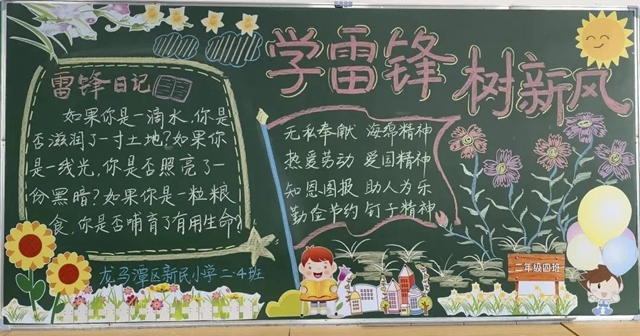 学雷锋 树新风
雷锋日记
如果你是一滴水,你是
否滋润了一寸土地?如果你
是一线光,你是否照亮了一
份黑暗?如果你是一粒粮
食,你是否哺育了有用生命?
无私奉献 海绵精神
热爱劳动 爱国精神
知恩图报 助人为乐
勤俭节约 钉子精神
龙马潭区新民小学二·4班
二年级四班